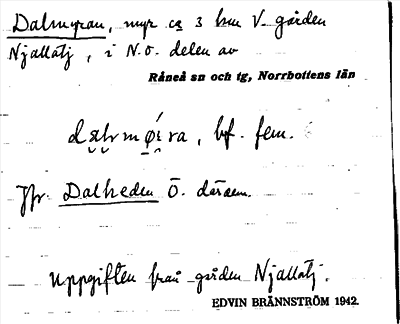 Dalmyran, myr ca 3 km V. gården
Njallatj, i N.O. delen av
Råneå sn och tg, Norrbottens län
bf. fem.
Jfr. Dalheden Ö. därom.
Uppgiften från gården Njallatj.
EDVIN BRÄNNSTRÖM 1942.